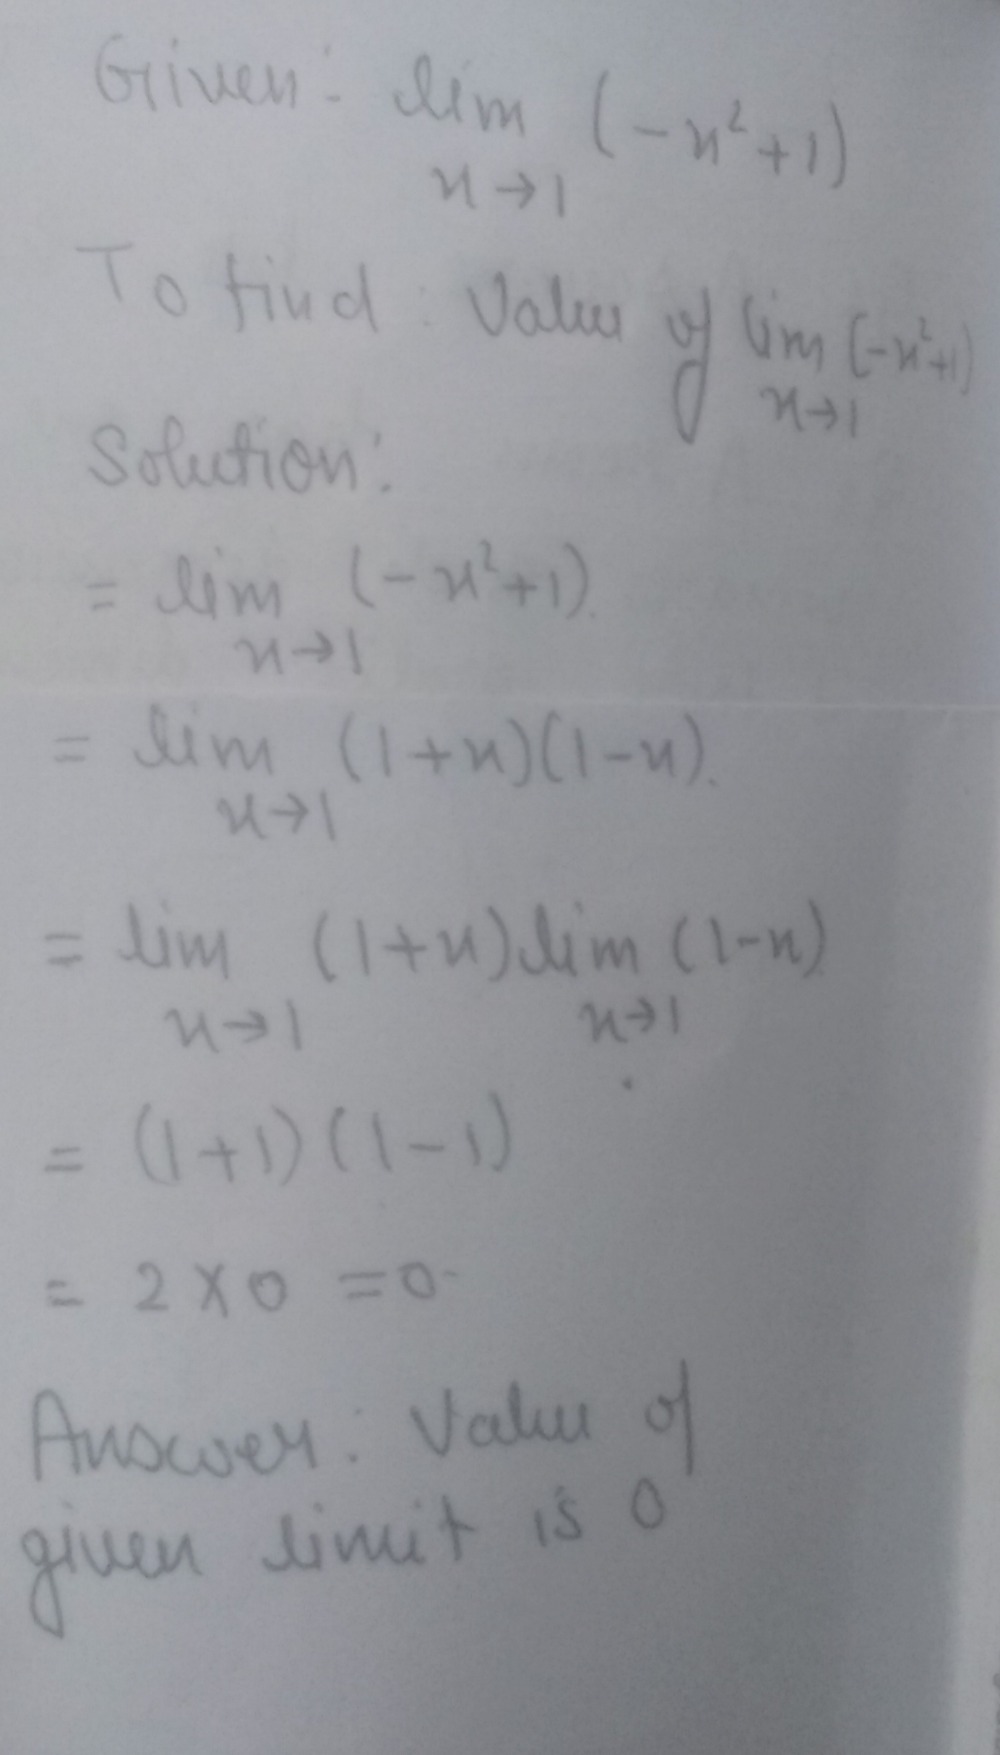 Given: lim (-x²+1)
x→1
To find: Value of lim (-x²+1)
x→1
Solution:
= lim (-x²+1).
x→1
= lim (1+x)(1-x).
x→1
= lim (1+x) lim (1-x)
x→1 x→1
= (1+1)(1-1)
= 2×0 =0
Answer: Value of
given limit is 0